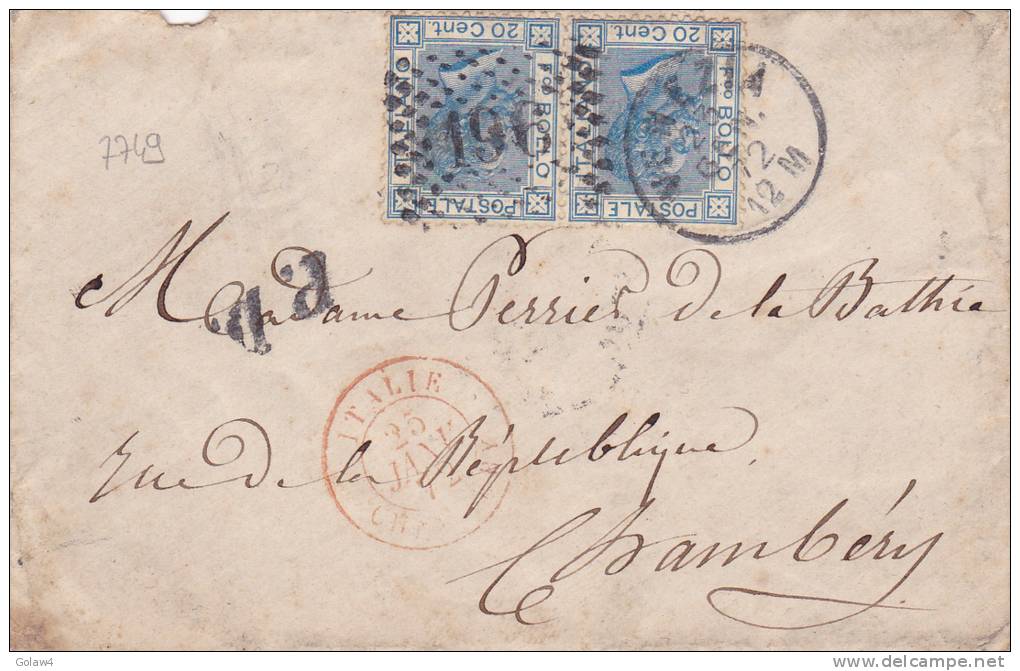 20 Cent.
20 Cent.
Fco BOLLO
Fco BOLLO
POSTALE
POSTALE
196
72
12 M
7749
Madame Perrier de la Bathie
P.D.
ITALIE
25
JANV
72
rue de la République,
Chambéry
Golaw4
www.delcampe.net